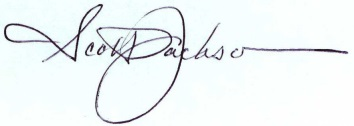 Scott Jackson